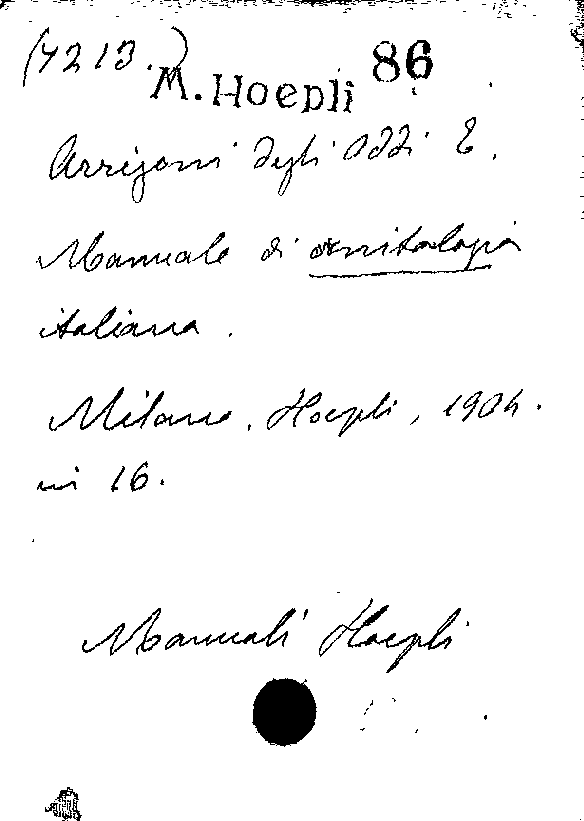 (4213.)
M. Hoepli 86
Arrigoni degli Oddi E.
Manuale di ornitologia
italiana.
Milano, Hoepli, 1904.
in 16.
Manuali Hoepli